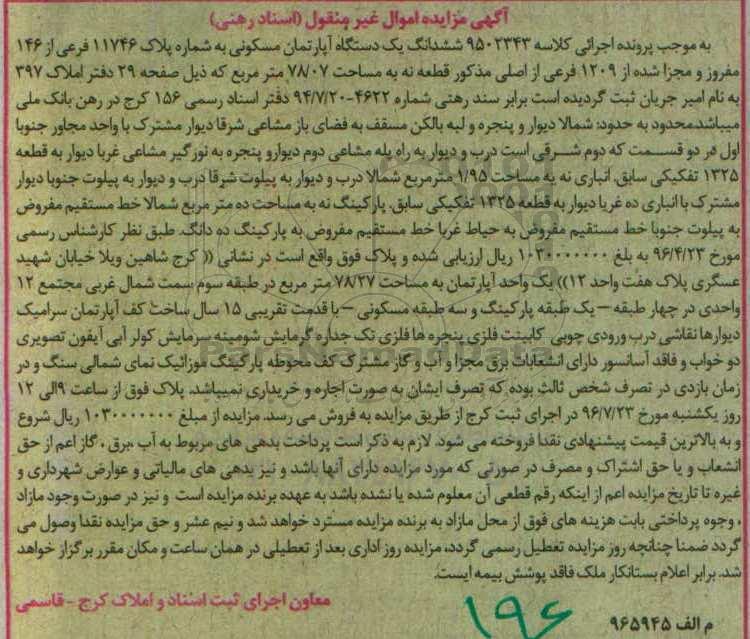 آگهی مزایده اموال غیر منقول (اسناد رهنی)
به موجب پرونده اجرائی کلاسه ۹۵۰۲۳۴۳ ششدانگ یک دستگاه آپارتمان مسکونی به شماره پلاک ۱۱۷۴۶ فرعی از ۱۴۶
مفروز و مجزا شده از ۱۲۰۹ فرعی از اصلی مذکور قطعه نه به مساحت ۷۸/۰۷ متر مربع که ذیل صفحه ۲۹ دفتر املاک ۳۹۷
به نام امیر جریان ثبت گردیده است برابر سند رهنی شماره ۴۶۲۲-۹۴/۷/۲۰ دفتر اسناد رسمی ۱۵۶ کرج در رهن بانک ملی
میباشد.محدود به حدود: شمالا دیوار و پنجره و لبه بالکن مسقف به فضای باز مشاعی شرقا دیوار مشترک با واحد مجاور جنوبا
اول در دو قسمت که دوم شرقی است درب و دیوار به راه پله مشاعی دوم دیوارو پنجره به نورگیر مشاعی غربا دیوار به قطعه
۱۳۲۵ تفکیکی سابق. انباری نه به مساحت ۱/۹۵ مترمربع شمالا درب و دیوار به پیلوت شرقا درب و دیوار به پیلوت جنوبا دیوار
مشترک با انباری ده غربا دیوار به قطعه ۱۳۲۵ تفکیکی سابق. پارکینگ نه به مساحت ده متر مربع شمالا خط مستقیم مفروض
به پیلوت جنوبا خط مستقیم مفروض به حیاط غربا خط مستقیم مفروض به پارکینگ ده دانگ. طبق نظر کارشناس رسمی
مورخ ۹۶/۴/۲۳ به بلغ ۱۰۳۰۰۰۰۰۰۰ ریال ارزیابی شده و پلاک فوق واقع است در نشانی (( کرج شاهین ویلا خیابان شهید
عسگری پلاک هفت واحد ۱۲)) یک واحد آپارتمان به مساحت ۷۸/۲۷ متر مربع در طبقه سوم سمت شمال غربی مجتمع ۱۲
واحدی در چهار طبقه – یک طبقه پارکینگ و سه طبقه مسکونی – با قدمت تقریبی ۱۵ سال ساخت کف آپارتمان سرامیک
دیوارها نقاشی درب ورودی چوبی کابینت فلزی پنجره ها فلزی تک جداره گرمایش شومینه سرمایش کولر آبی آیفون تصویری
دو خواب و فاقد آسانسور دارای انشعابات برق مجزا و آب و گاز مشترک کف محوطه پارکینگ موزائیک نمای شمالی سنگ و در
زمان بازدی در تصرف شخص ثالث بوده که تصرف ایشان به صورت اجاره و خریداری نمیباشد. پلاک فوق از ساعت ۹الی ۱۲
روز یکشنبه مورخ ۹۶/۷/۲۳ در اجرای ثبت کرج از طریق مزایده به فروش می رسد. مزایده از مبلغ ۱۰۳۰۰۰۰۰۰۰ ریال شروع
و به بالاترین قیمت پیشنهادی نقدا فروخته می شود. لازم به ذکر است پرداخت بدهی های مربوط به آب ،برق ، گاز اعم از حق
انشعاب و یا حق اشتراک و مصرف در صورتی که مورد مزایده دارای آنها باشد و نیز بدهی های مالیاتی و عوارض شهرداری و
غیره تا تاریخ مزایده اعم از اینکه رقم قطعی آن معلوم شده یا نشده باشد به عهده برنده مزایده است و نیز در صورت وجود مازاد
، وجوه پرداختی بابت هزینه های فوق از محل مازاد به برنده مزایده مسترد خواهد شد و نیم عشر و حق مزایده نقدا وصول می
گردد ضمنا چنانچه روز مزایده تعطیل رسمی گردد، مزایده روز اداری بعد از تعطیلی در همان ساعت و مکان مقرر برگزار خواهد
شد. برابر اعلام بستانکار ملک فاقد پوشش بیمه ایست.
معاون اجرای ثبت اسناد و املاک کرج - قاسمی
۱۹۶
م الف ۹۶۵۹۴۵